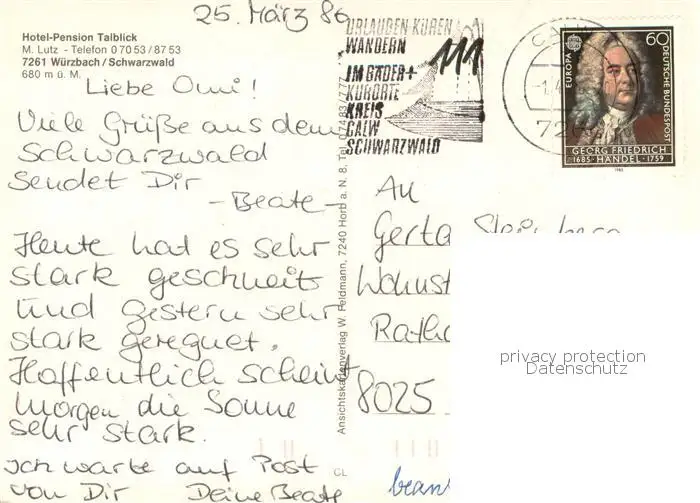 25. März 86
Hotel-Pension Talblick
M. Lutz - Telefon 0 70 53 / 87 53
7261 Würzbach / Schwarzwald
680 m ü. M.
Liebe Omi!
Viele Grüße aus dem
Schwarzwald
sendet Dir
- Beate -
Heute hat es sehr
stark geschneit
und gestern sehr
stark geregnet.
Hoffentlich scheint
morgen die Sonne
sehr stark.
Ich warte auf Post
von Dir Deine Beate
Ansichtskartenverlag W. Feldmann, 7240 Horb a. N. 8, Tel. 07483/77
CL
URLAUBEN KUREN
WANDERN
IM BÄDER +
KURORTE
KREIS
CALW
SCHWARZWALD
CALW
EUROPA
60
DEUTSCHE BUNDESPOST
GEORG FRIEDRICH
1685 · HÄNDEL · 1759
1985
An
Gerta
Wohnst
Ratha
8025
beant
privacy protection
Datenschutz